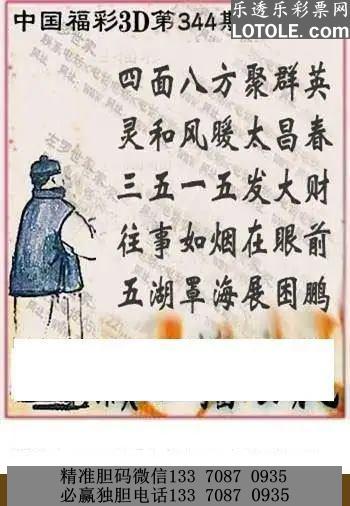 中国福彩3D第344期
乐透乐彩票网
WWW.LOTOLE.COM
四面八方聚群英
灵和风暖太昌春
三五一五发大财
往事如烟在眼前
五湖罩海展困鹏
精准胆码微信133 7087 0935
必赢独胆电话133 7087 0935